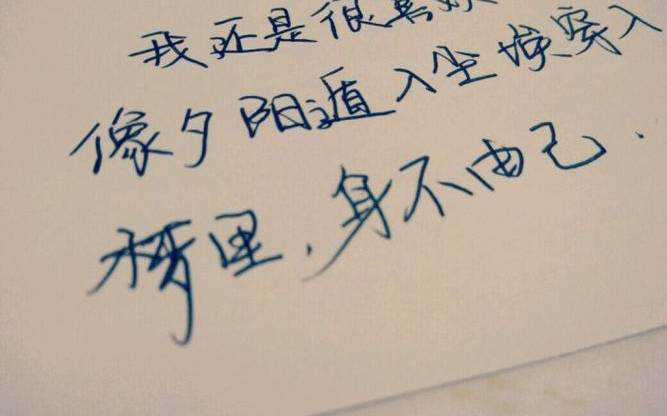 我还是很喜欢
像夕阳遁入尘埃穿入
梦里，身不由己.